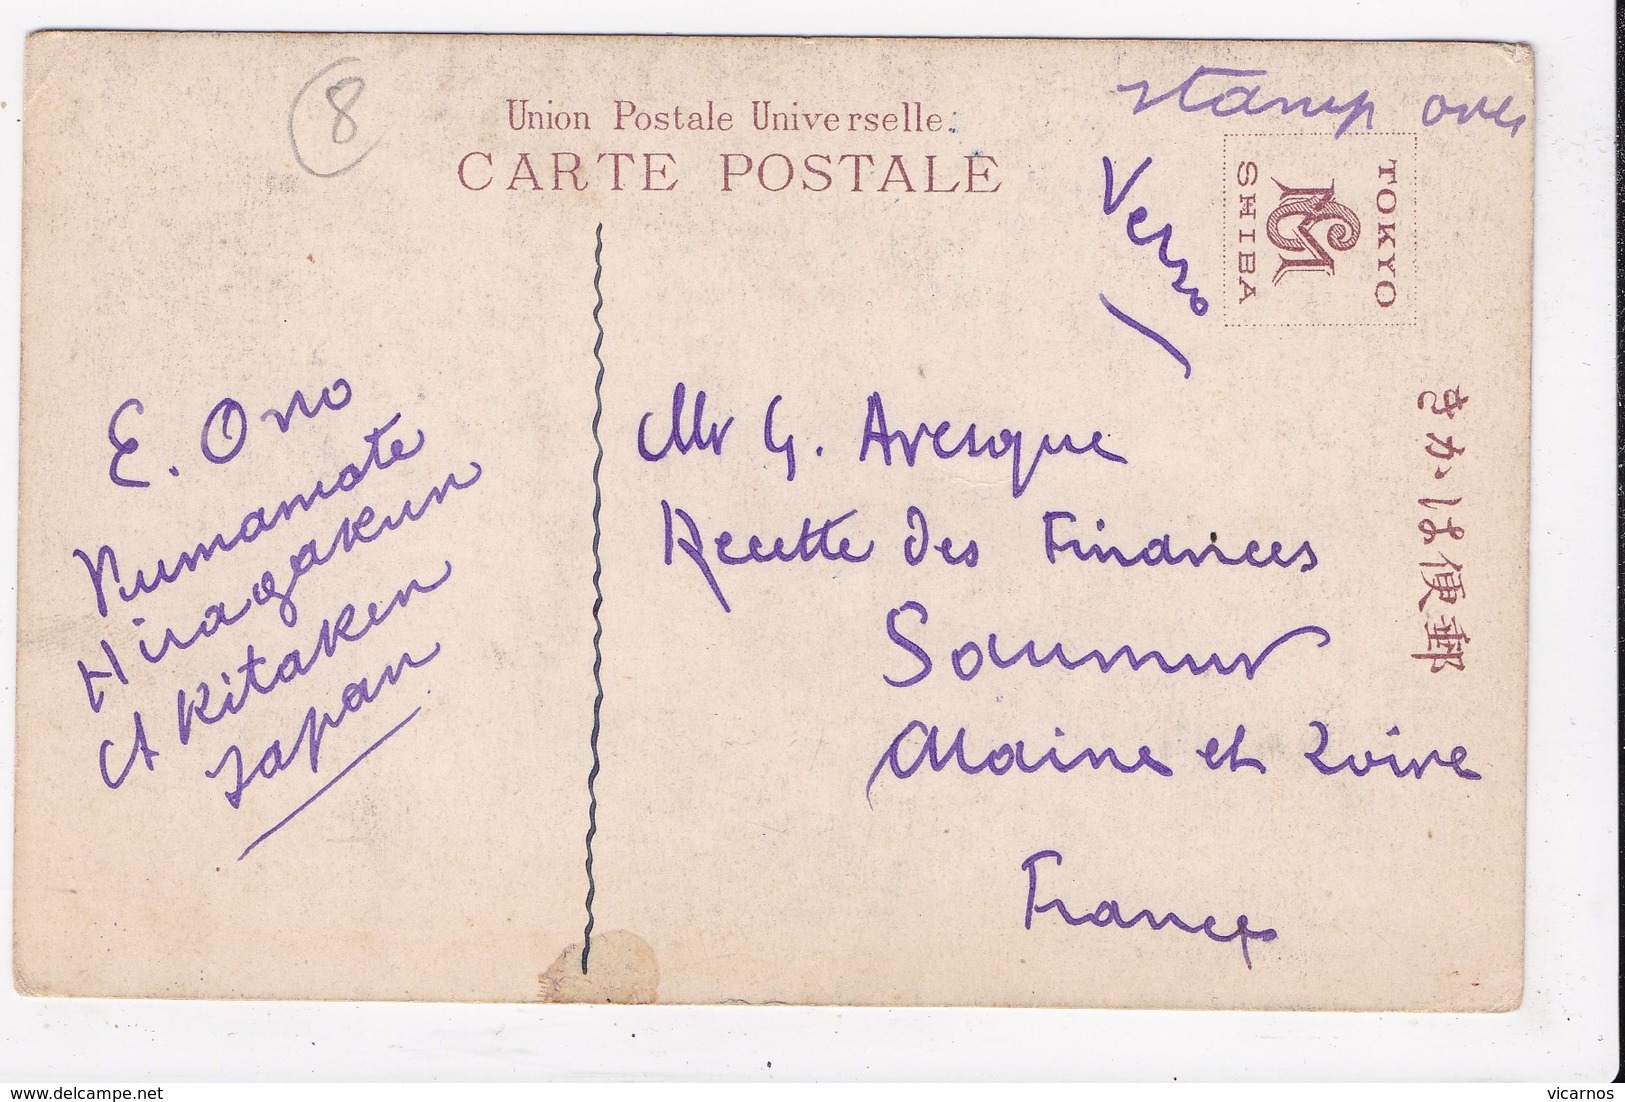 8
Union Postale Universelle.
CARTE POSTALE
stamp over
Verso
TOKYO
SHIBA
きかは便郵
E. Ono
Numamate
Hiragakun
Akitaken
Japan
Mr G. Avesque
Recette des Finances
Saumur
Maine et Loire
France
delcampe.net
vicarnos